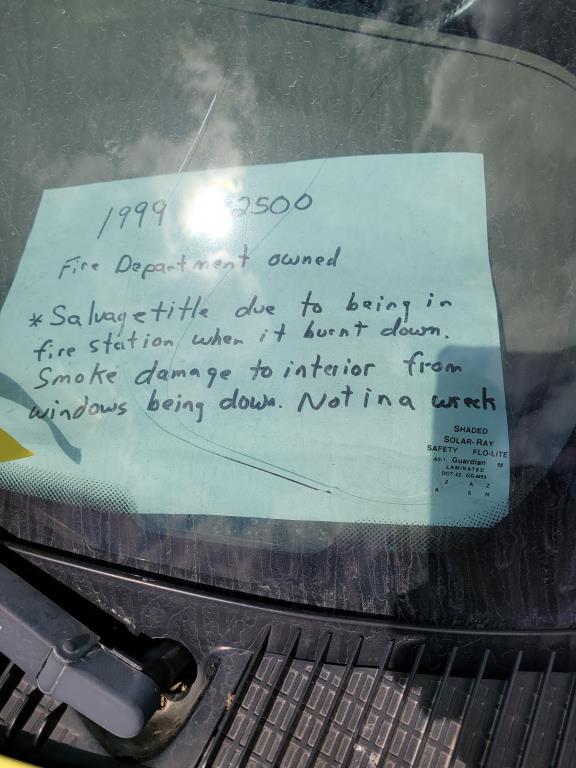 1999 2500
Fire Department owned
* Salvage title due to being in
fire station when it burnt down.
Smoke damage to interior from
windows being down. Not in a wreck
SHADED
SOLAR-RAY
SAFETY FLO-LITE
AS-1 Guardian 98
LAMINATED
DOT-22 GG-M55
2 A 2
A 5 N